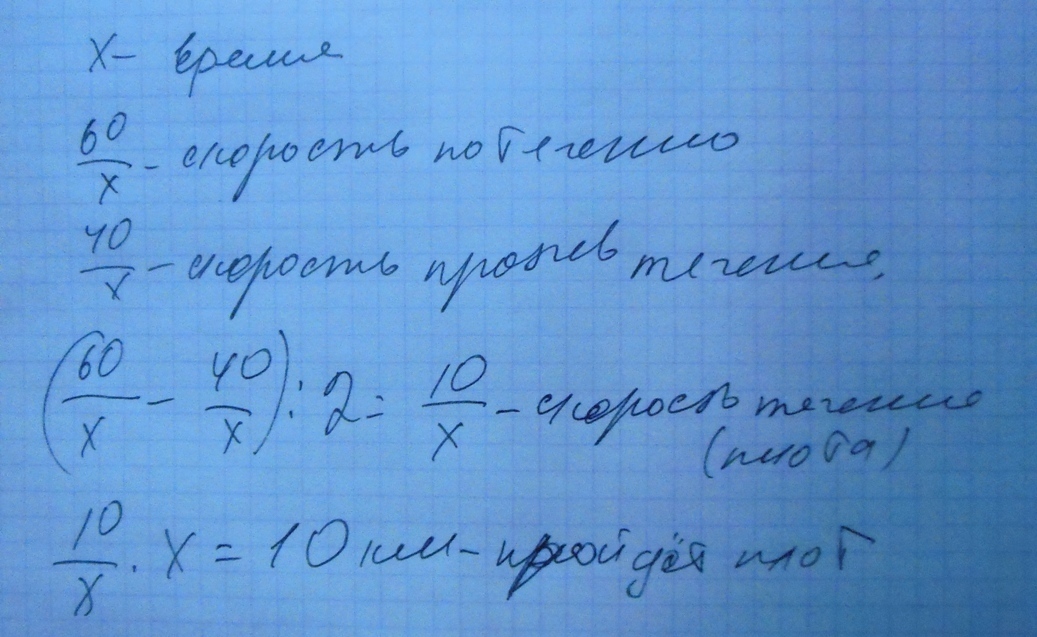 x - время
60/x - скорость по течению
40/x - скорость против течения,
(60/x - 40/x) : 2 = 10/x - скорость течения
(плота)
10/x · x = 10 км - пройдёт плот